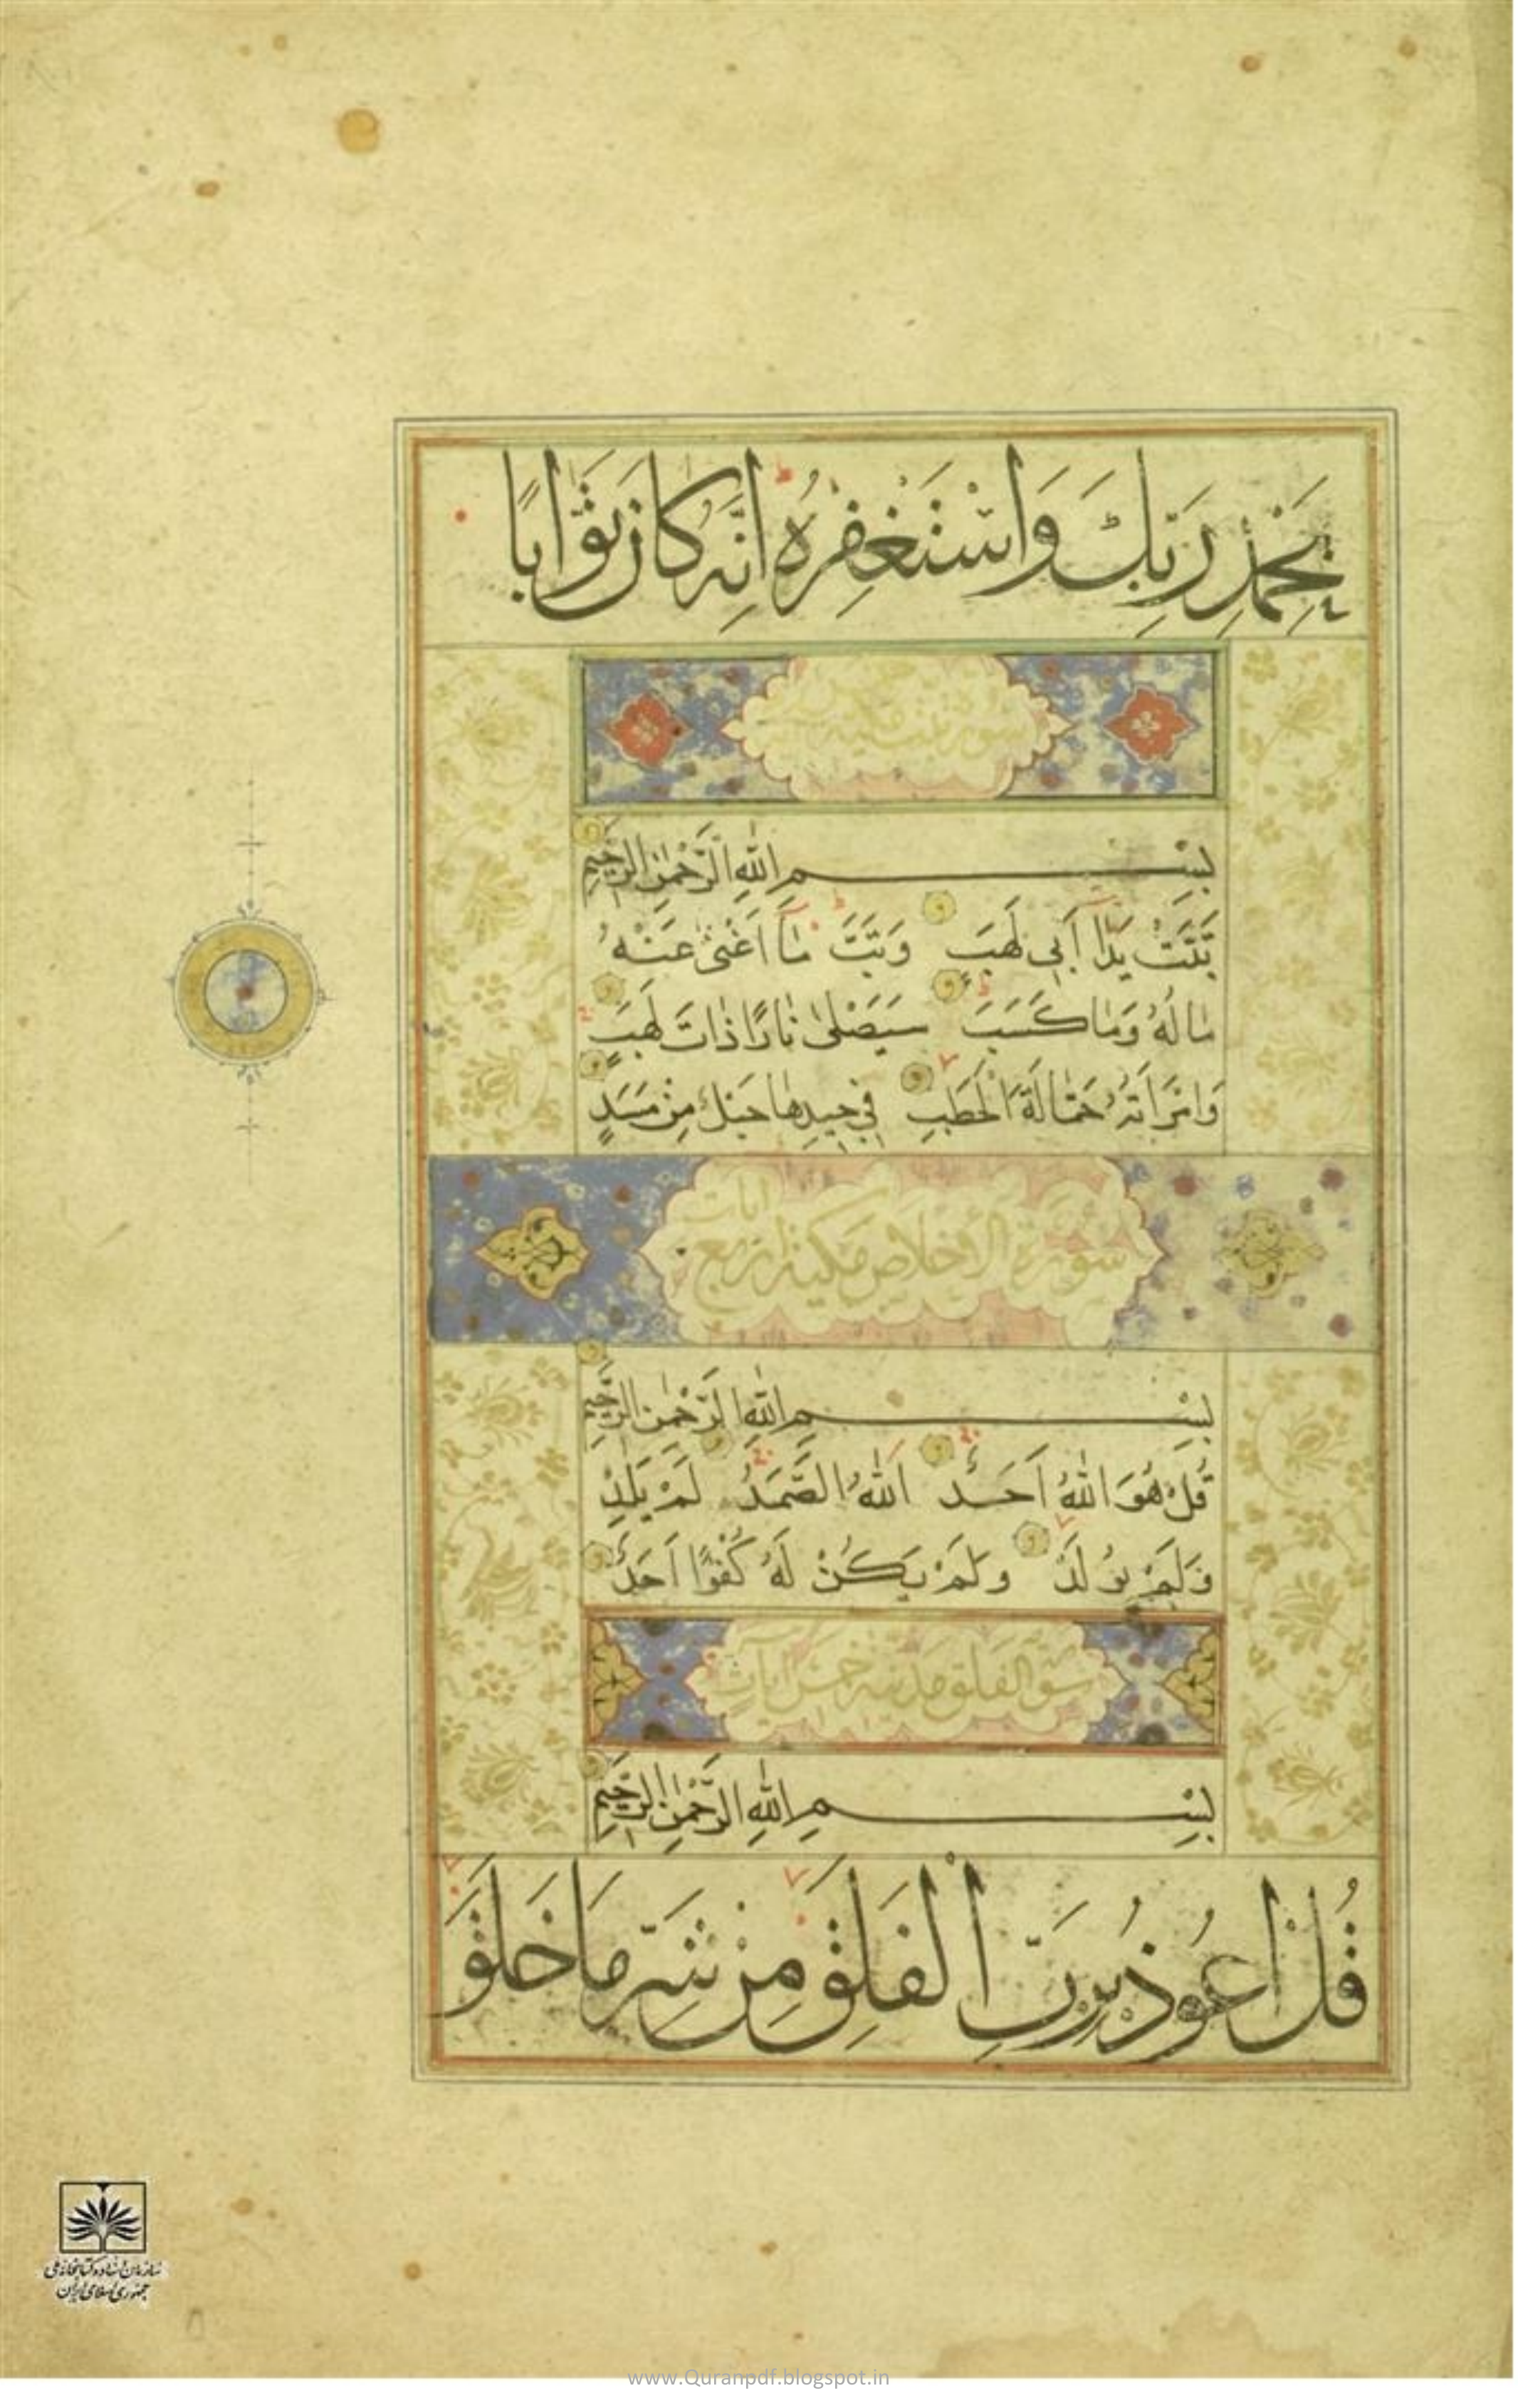 بِحَمْدِ رَبِّكَ وَاسْتَغْفِرْهُ اِنَّهُ كَانَ تَوَّابًا
سورة تبت مكية
بِسْمِ اللّٰهِ الرَّحْمٰنِ الرَّحِيمِ
تَبَّتْ يَدَا اَبِي لَهَبٍ وَتَبَّ مَا اَغْنٰى عَنْهُ
مَالُهُ وَمَا كَسَبَ سَيَصْلٰى نَارًا ذَاتَ لَهَبٍ
وَامْرَاَتُهُ حَمَّالَةَ الْحَطَبِ فِي جِيدِهَا حَبْلٌ مِنْ مَسَدٍ
سورة الاخلاص مكية اربع ايات
بِسْمِ اللّٰهِ الرَّحْمٰنِ الرَّحِيمِ
قُلْ هُوَ اللّٰهُ اَحَدٌ اَللّٰهُ الصَّمَدُ لَمْ يَلِدْ
وَلَمْ يُولَدْ وَلَمْ يَكُنْ لَهُ كُفُوًا اَحَدٌ
سورة الفلق مدنية خمس ايات
بِسْمِ اللّٰهِ الرَّحْمٰنِ الرَّحِيمِ
قُلْ اَعُوذُ بِرَبِّ الْفَلَقِ مِنْ شَرِّ مَا خَلَقَ
سازمان اسناد و کتابخانه ملی
جمهوری اسلامی ایران
www.Quranpdf.blogspot.in